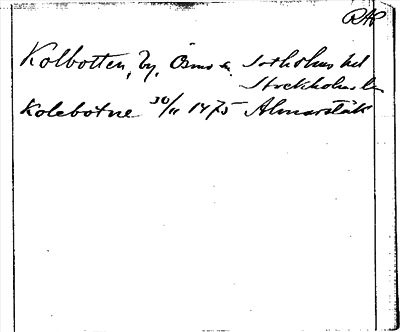 RAP
Kolbotten, by, Ösmo sn. Sotholms hd
Stockholms län
Kolebotne 30/11 1475 Almarstäk